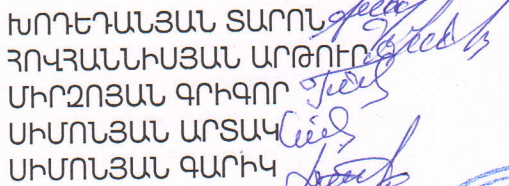 ԽՈԴԵԴԱՆՅԱՆ ՏԱՐՈՆ
ՀՈՎՀԱՆՆԻՍՅԱՆ ԱՐԹՈՒՐ
ՄԻՐԶՈՅԱՆ ԳՐԻԳՈՐ
ՍԻՄՈՆՅԱՆ ԱՐՏԱԿ
ՍԻՄՈՆՅԱՆ ԳԱՐԻԿ